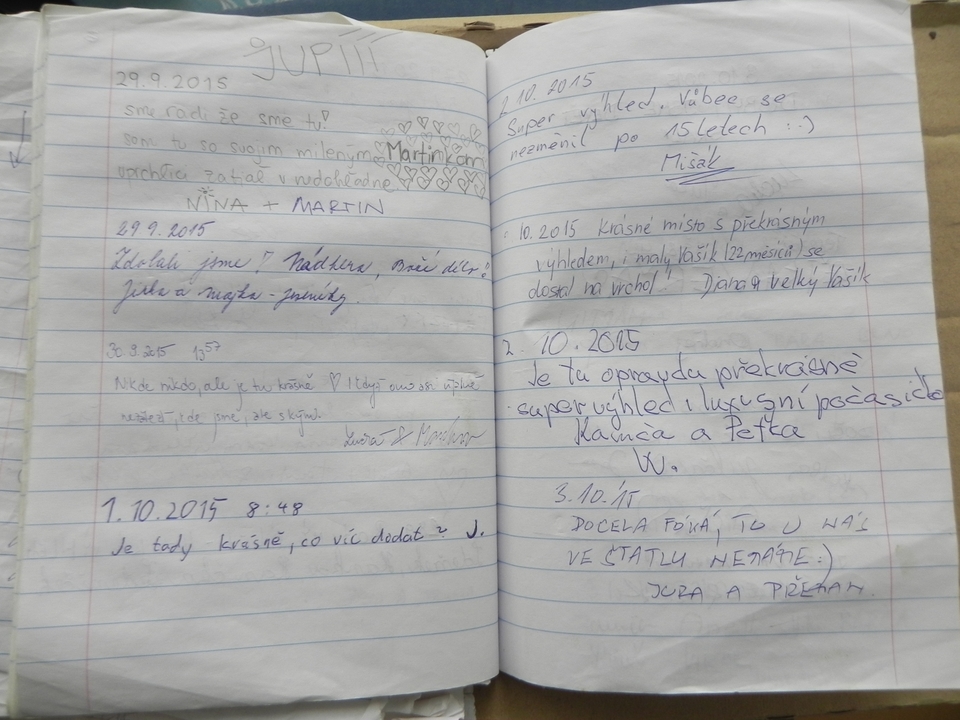 JUPÍÍÍ
29.9.2015
sme radi že sme tu!
som tu so svojim mileným Martinkom
uprchlíci zatiaľ v nedohľadne
NINA + MARTIN
29.9.2015
Zdolali jsme! Nádhera, Boží dílo!
Jirka a
30.9.2015 13⁵⁷
Nikde nikdo, ale je tu krásně I když
jsme, ale s kým.
Lucia &
1.10.2015 8:48
Je tady krásně, co víc dodat? J.
2.10.2015
Super výhled. Vůbec se
nezměnil po 15 letech :-)
Mišák
10.2015 Krásné místo s překrásným
výhledem, i malý Vašík (22 měsíců) se
dostal na vrchol Diana a velký Vašík
2. 10. 2015
Je tu opravdu překrásně
super výhled i luxusní počasíčko
Kamča a Peťka
W.
3.10.'15
DOCELA FÚKÁ, TO U NÁS
VE ŠTATLU NEMÁME :)
JURA A PŘEMAN